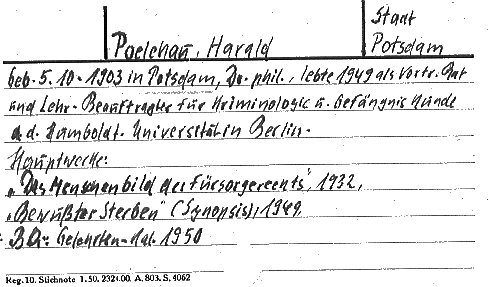 Staat
Poelchau, Harald Potsdam
geb. 5. 10. 1903 in Potsdam, Dr. phil., lebte 1949 als Vortr. Rat
und Lehr-Beauftragter für Kriminologie u. Gefängniskunde
a. d. Humboldt-Universität in Berlin.
Hauptwerke:
„Das Menschenbild des Fürsorgerechts", 1932,
„Bewußter Sterben" (Synopsis), 1949.
BQ: Gelehrten-Kal. 1950
Reg. 10. Stichnote 1. 50. 2324.00. A. 803. S. 4062